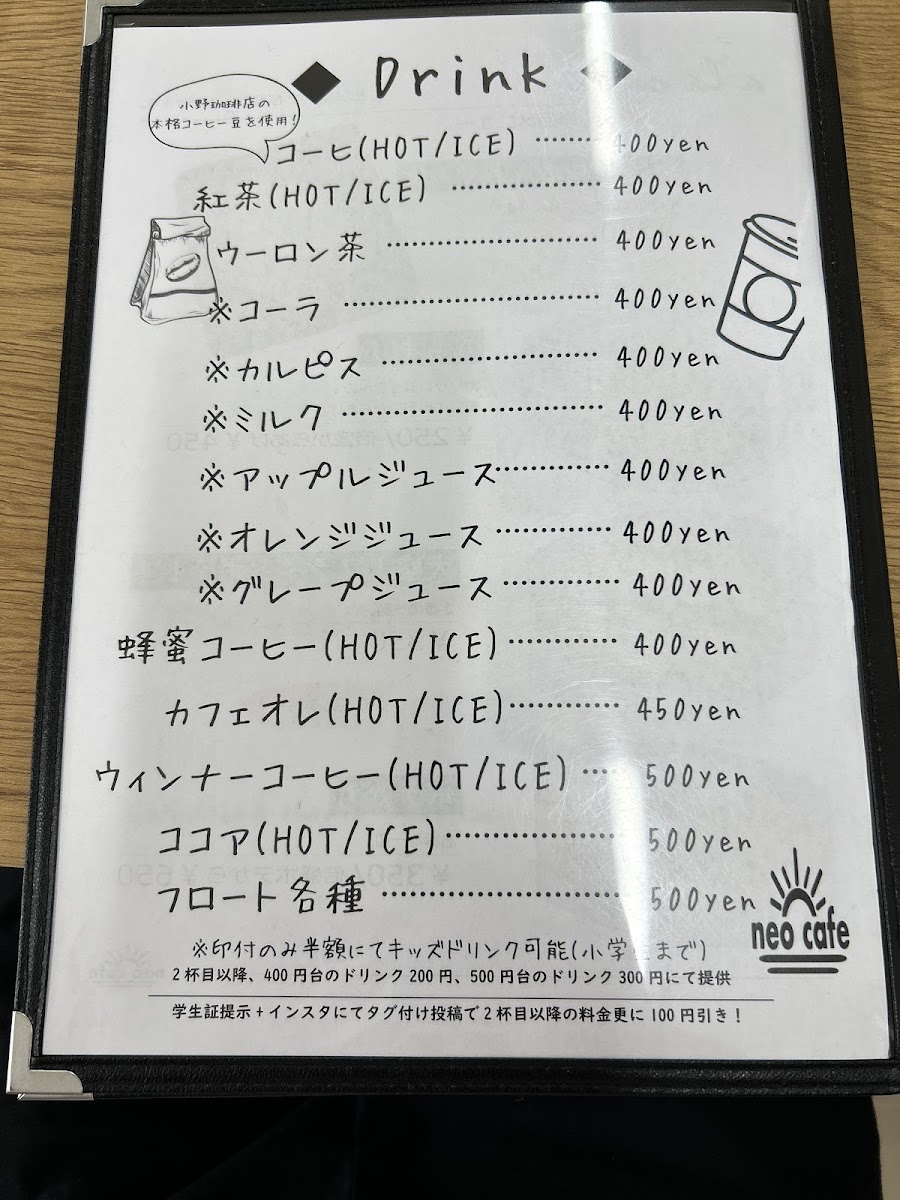 ◆ Drink ◆
小野珈琲店の
本格コーヒー豆を使用!
コーヒ(HOT/ICE) ········ 400yen
紅茶(HOT/ICE) ·················· 400yen
ウーロン茶 ························· 400yen
※コーラ ······························ 400yen
※カルピス ························· 400yen
※ミルク ······························ 400yen
※アップルジュース············· 400yen
※オレンジジュース ············· 400yen
※グレープジュース ············· 400yen
蜂蜜コーヒー(HOT/ICE) ············ 400yen
カフェオレ(HOT/ICE)············ 450yen
ウィンナーコーヒー(HOT/ICE) ···· 500yen
ココア(HOT/ICE)···················· 500yen
フロート各種 ·························· 500yen
neo cafe
※印付のみ半額にてキッズドリンク可能(小学生まで)
2杯目以降、400円台のドリンク200円、500円台のドリンク300円にて提供
学生証提示+インスタにてタグ付け投稿で2杯目以降の料金更に100円引き!